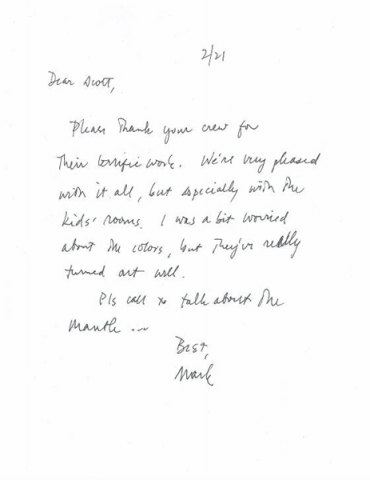 2/21
Dear Scott,
Please thank your crew for
their terrific work. We're very pleased
with it all, but especially with the
kids' rooms. I was a bit worried
about the colors, but they've really
turned out well.
Pls call to talk about the
mantle ...
Best,
Mark